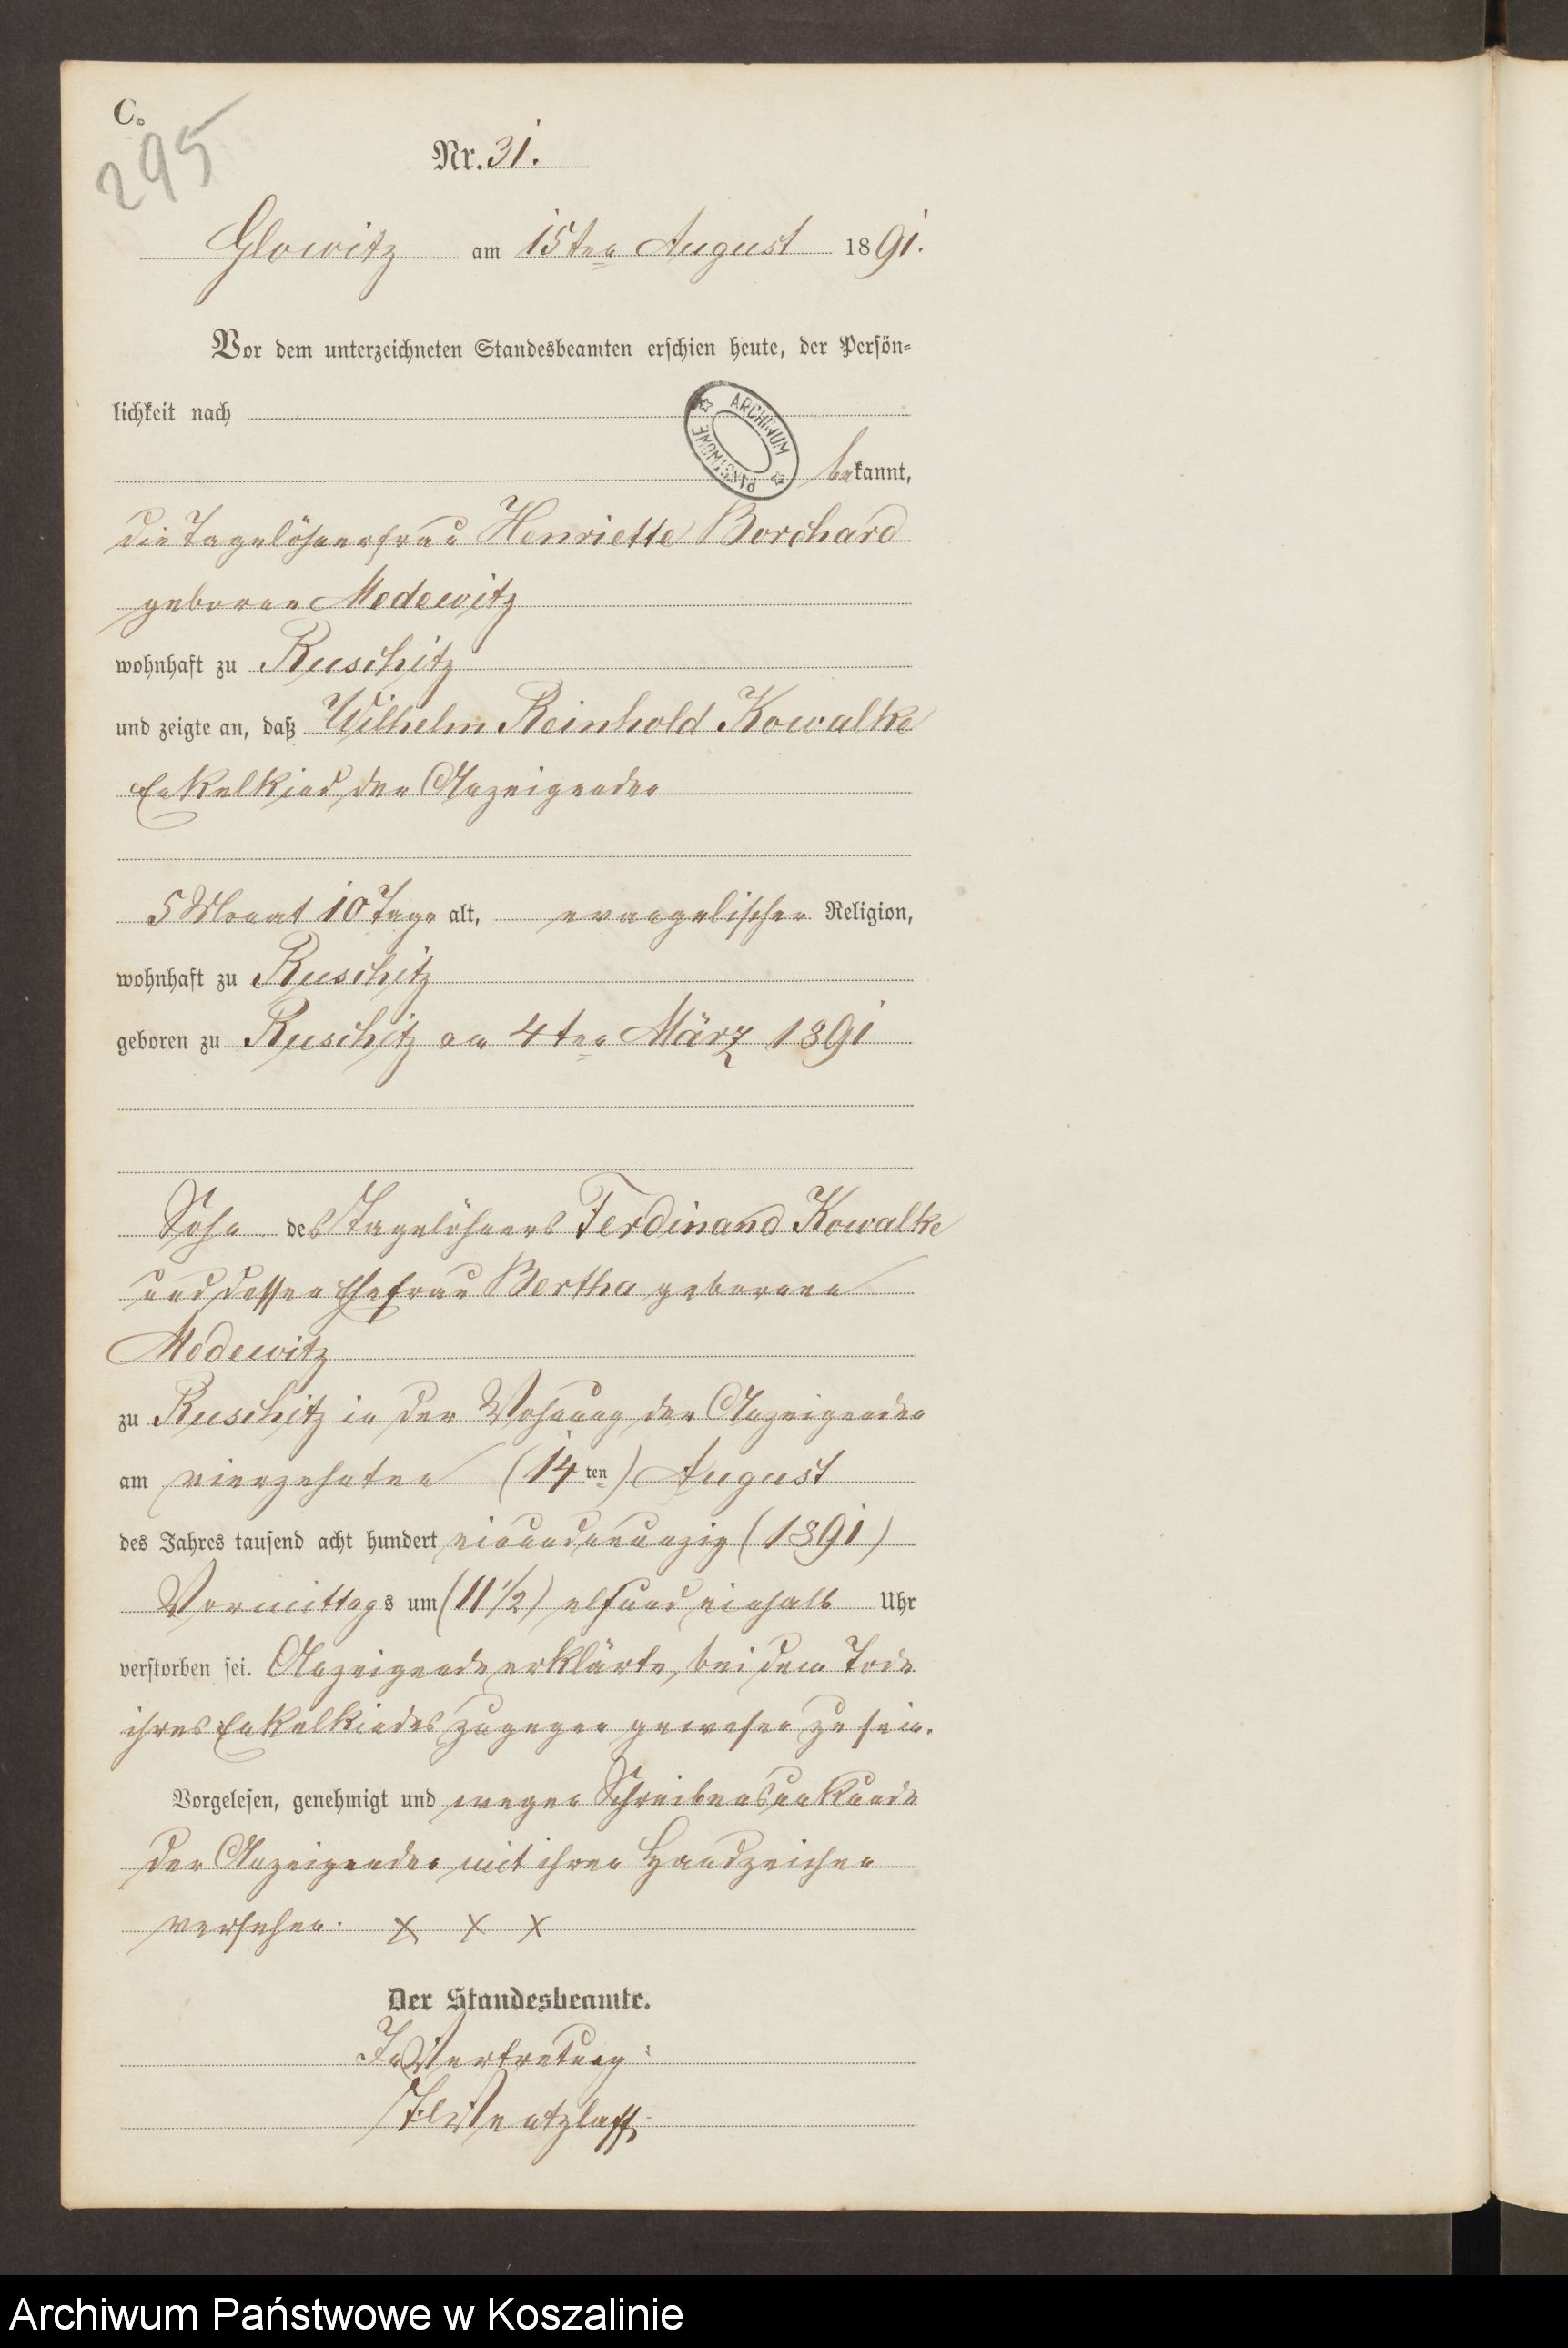 C.
295
Nr. 31.
Glowitz am 15ten August 1891.
Vor dem unterzeichneten Standesbeamten erschien heute, der Persön-
lichkeit nach
ARCHIWUM PAŃSTWOWE
bekannt,
die Tagelöhnerfrau Henriette Borchard
geborene Medewitz
wohnhaft zu Ruschitz
und zeigte an, daß Wilhelm Reinhold Kowalke
Enkelkind der Anzeigenden
5 Monat 10 Tage alt, evangelischer Religion,
wohnhaft zu Ruschitz
geboren zu Ruschitz am 4ten März 1891
Sohn des Tagelöhners Ferdinand Kowalke
und dessen Ehefrau Bertha geborenen
Medewitz
zu Ruschitz in der Wohnung der Anzeigenden
am vierzehnten (14ten) August
des Jahres tausend acht hundert einundneunzig (1891)
Vormittags um (11 1/2) elf und einhalb Uhr
verstorben sei. Anzeigende erklärte, bei dem Tode
ihres Enkelkindes zugegen gewesen zu sein.
Vorgelesen, genehmigt und wegen Schreibensunkunde
der Anzeigenden mit ihren Handzeichen
versehen. X X X
Der Standesbeamte.
In Vertretung:
Wentzlaff.
Archiwum Państwowe w Koszalinie